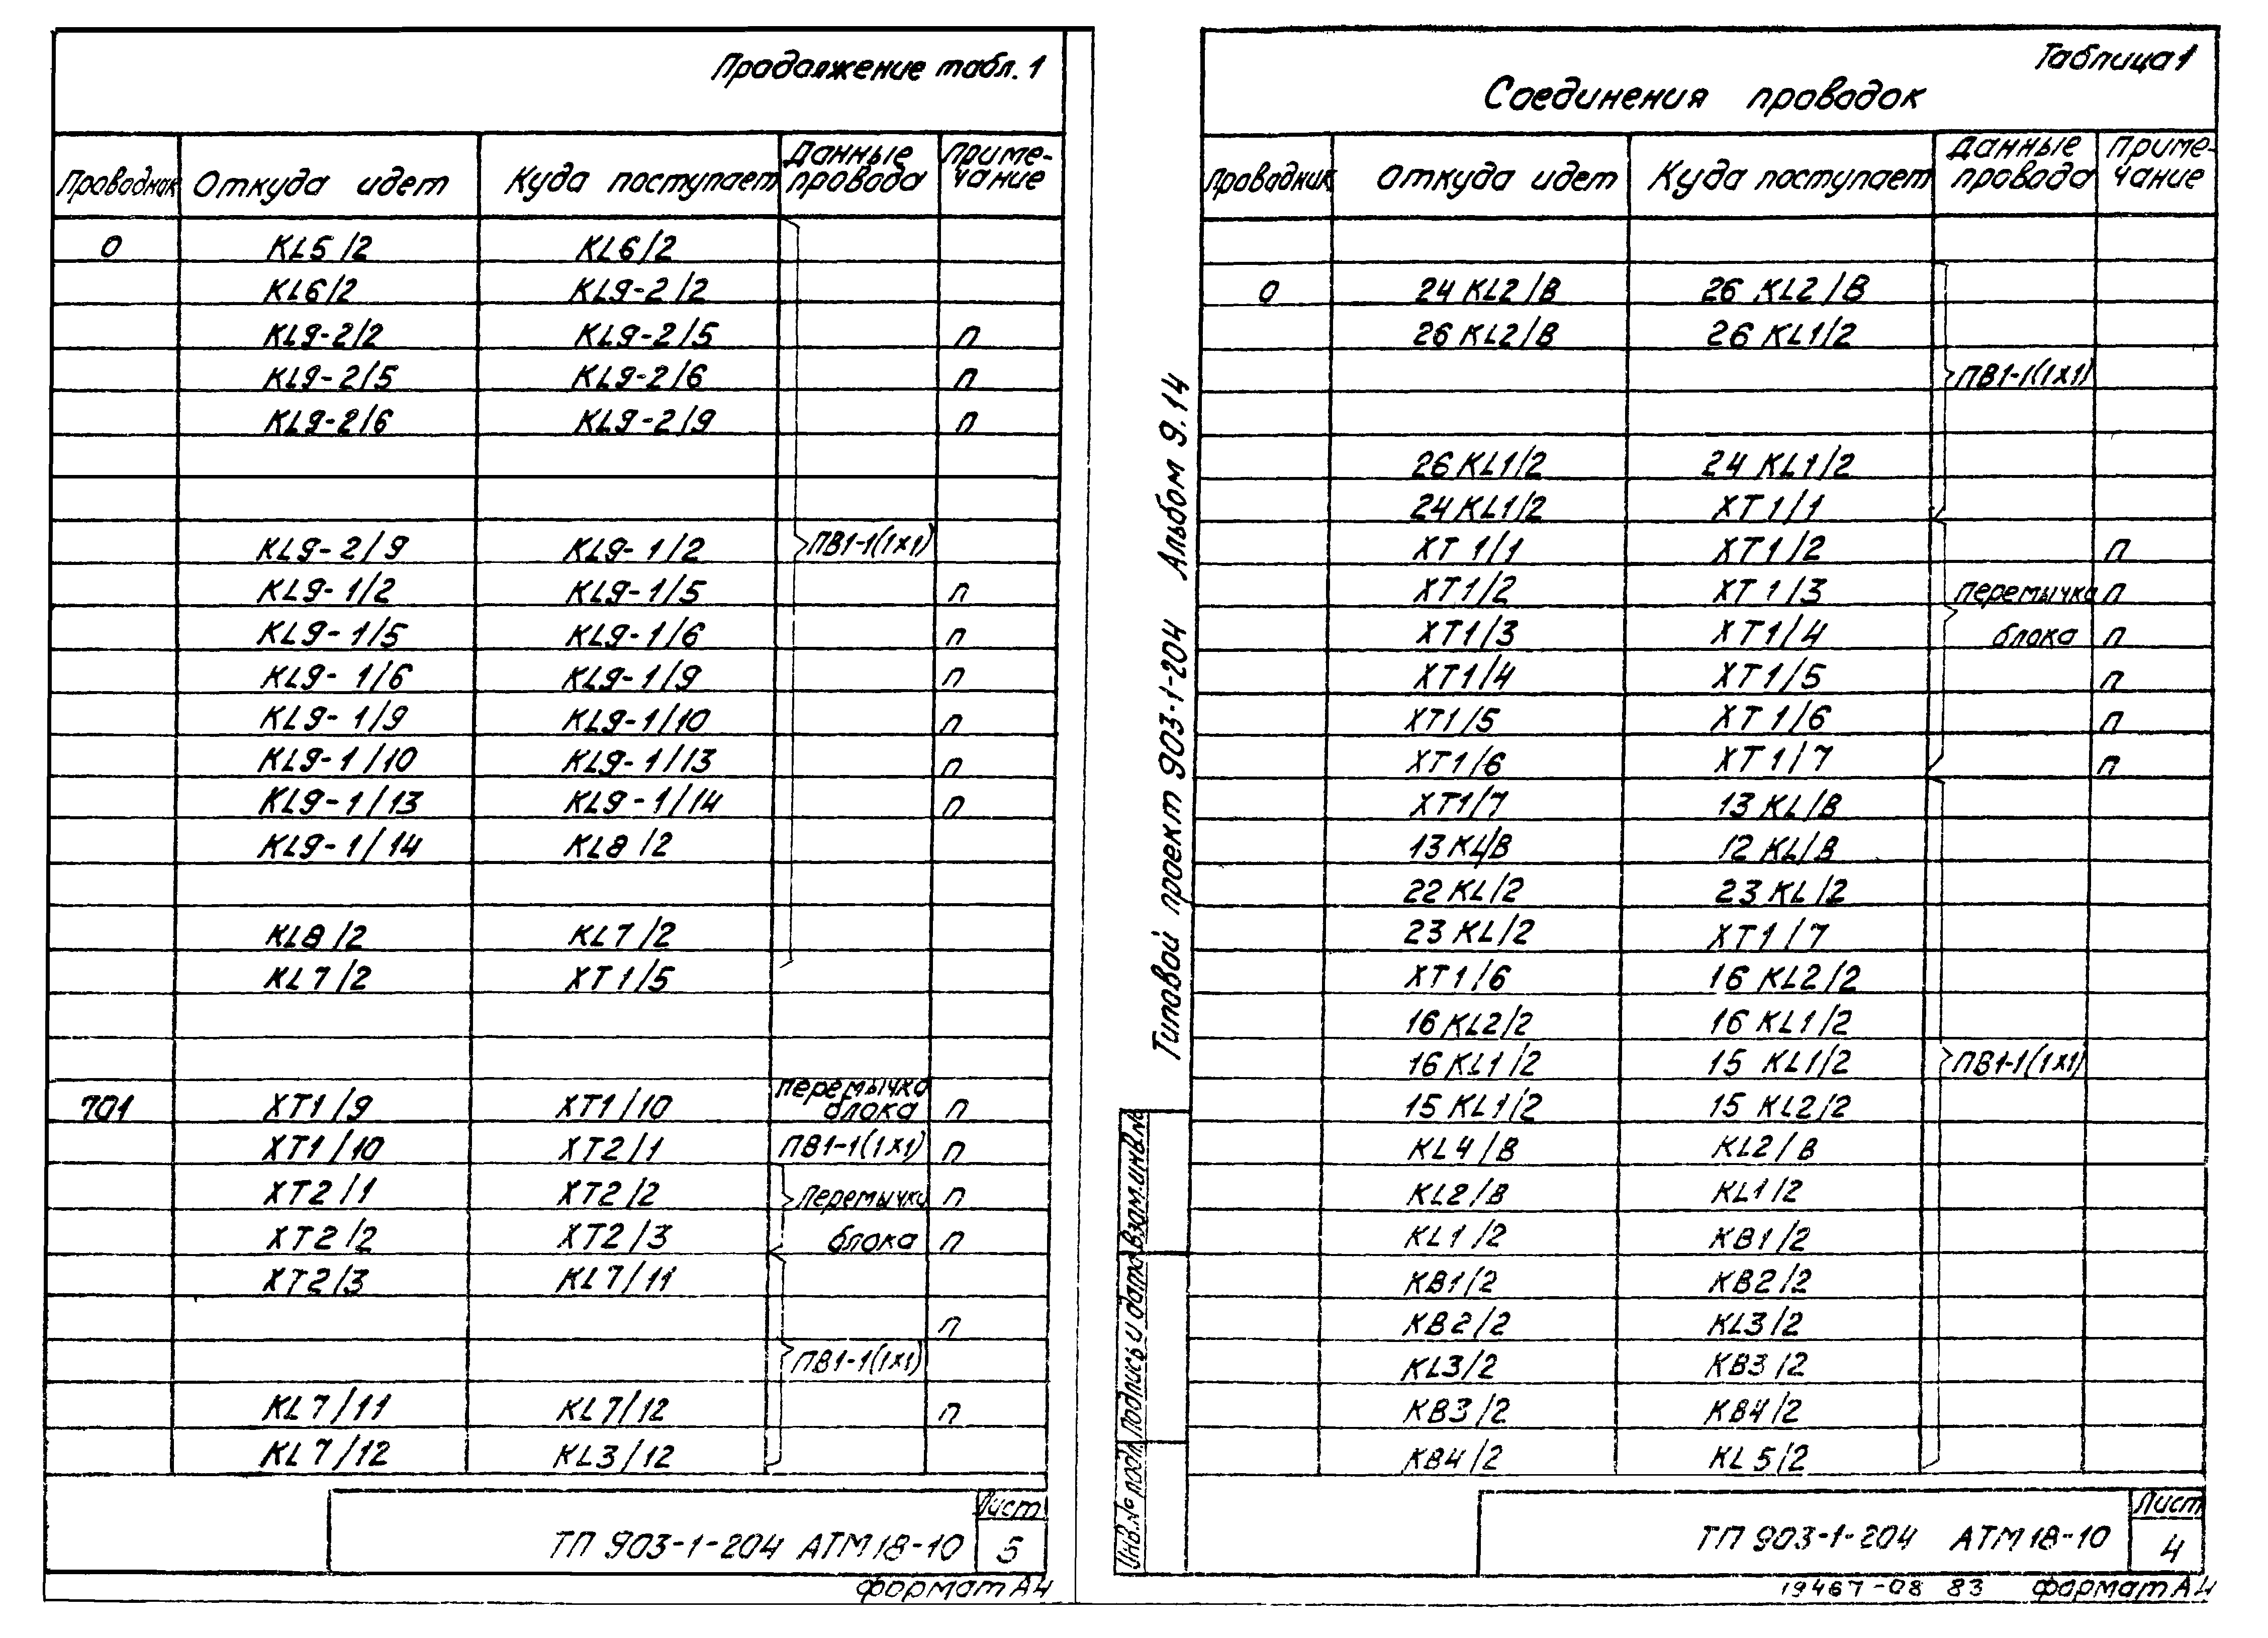 Продолжение табл. 1
Проводник Откуда идет Куда поступает Данные провода Примечание
0 KL5/2 KL6/2
KL6/2 KL9-2/2
KL9-2/2 KL9-2/5 п
KL9-2/5 KL9-2/6 п
KL9-2/6 KL9-2/9 п
KL9-2/9 KL9-1/2 ПВ1-1(1х1)
KL9-1/2 KL9-1/5 п
KL9-1/5 KL9-1/6 п
KL9-1/6 KL9-1/9 п
KL9-1/9 KL9-1/10 п
KL9-1/10 KL9-1/13 п
KL9-1/13 KL9-1/14 п
KL9-1/14 KL8/2
KL8/2 KL7/2
KL7/2 XT1/5
701 XT1/9 XT1/10 перемычка блока п
XT1/10 XT2/1 ПВ1-1(1х1) п
XT2/1 XT2/2 Перемычка п
XT2/2 XT2/3 блока п
XT2/3 KL7/11
п
ПВ1-1(1х1)
KL7/11 KL7/12 п
KL7/12 KL3/12
ТП 903-1-204 АТМ18-10
Лист
5
формат А4
Таблица 1
Соединения проводок
Проводник Откуда идет Куда поступает Данные провода Примечание
0 24KL2/B 26KL2/B
26KL2/B 26KL1/2
ПВ1-1(1х1)
26KL1/2 24KL1/2
24KL1/2 XT1/1
XT1/1 XT1/2 п
XT1/2 XT1/3 перемычка п
XT1/3 XT1/4 блока п
XT1/4 XT1/5 п
XT1/5 XT1/6 п
XT1/6 XT1/7 п
XT1/7 13KL/B
13KL/B 12KL/B
22KL/2 23KL/2
23KL/2 XT1/7
XT1/6 16KL2/2
16KL2/2 16KL1/2
16KL1/2 15KL1/2 ПВ1-1(1х1)
15KL1/2 15KL2/2
KL4/B KL2/B
KL2/B KL1/2
KL1/2 KB1/2
KB1/2 KB2/2
KB2/2 KL3/2
KL3/2 KB3/2
KB3/2 KB4/2
KB4/2 KL5/2
Типовой проект 903-1-204 Альбом 9.14
Взам.инв.№
Подпись и дата
Инв.№ подл.
ТП 903-1-204 АТМ18-10
Лист
4
19467-08 83 формат А4